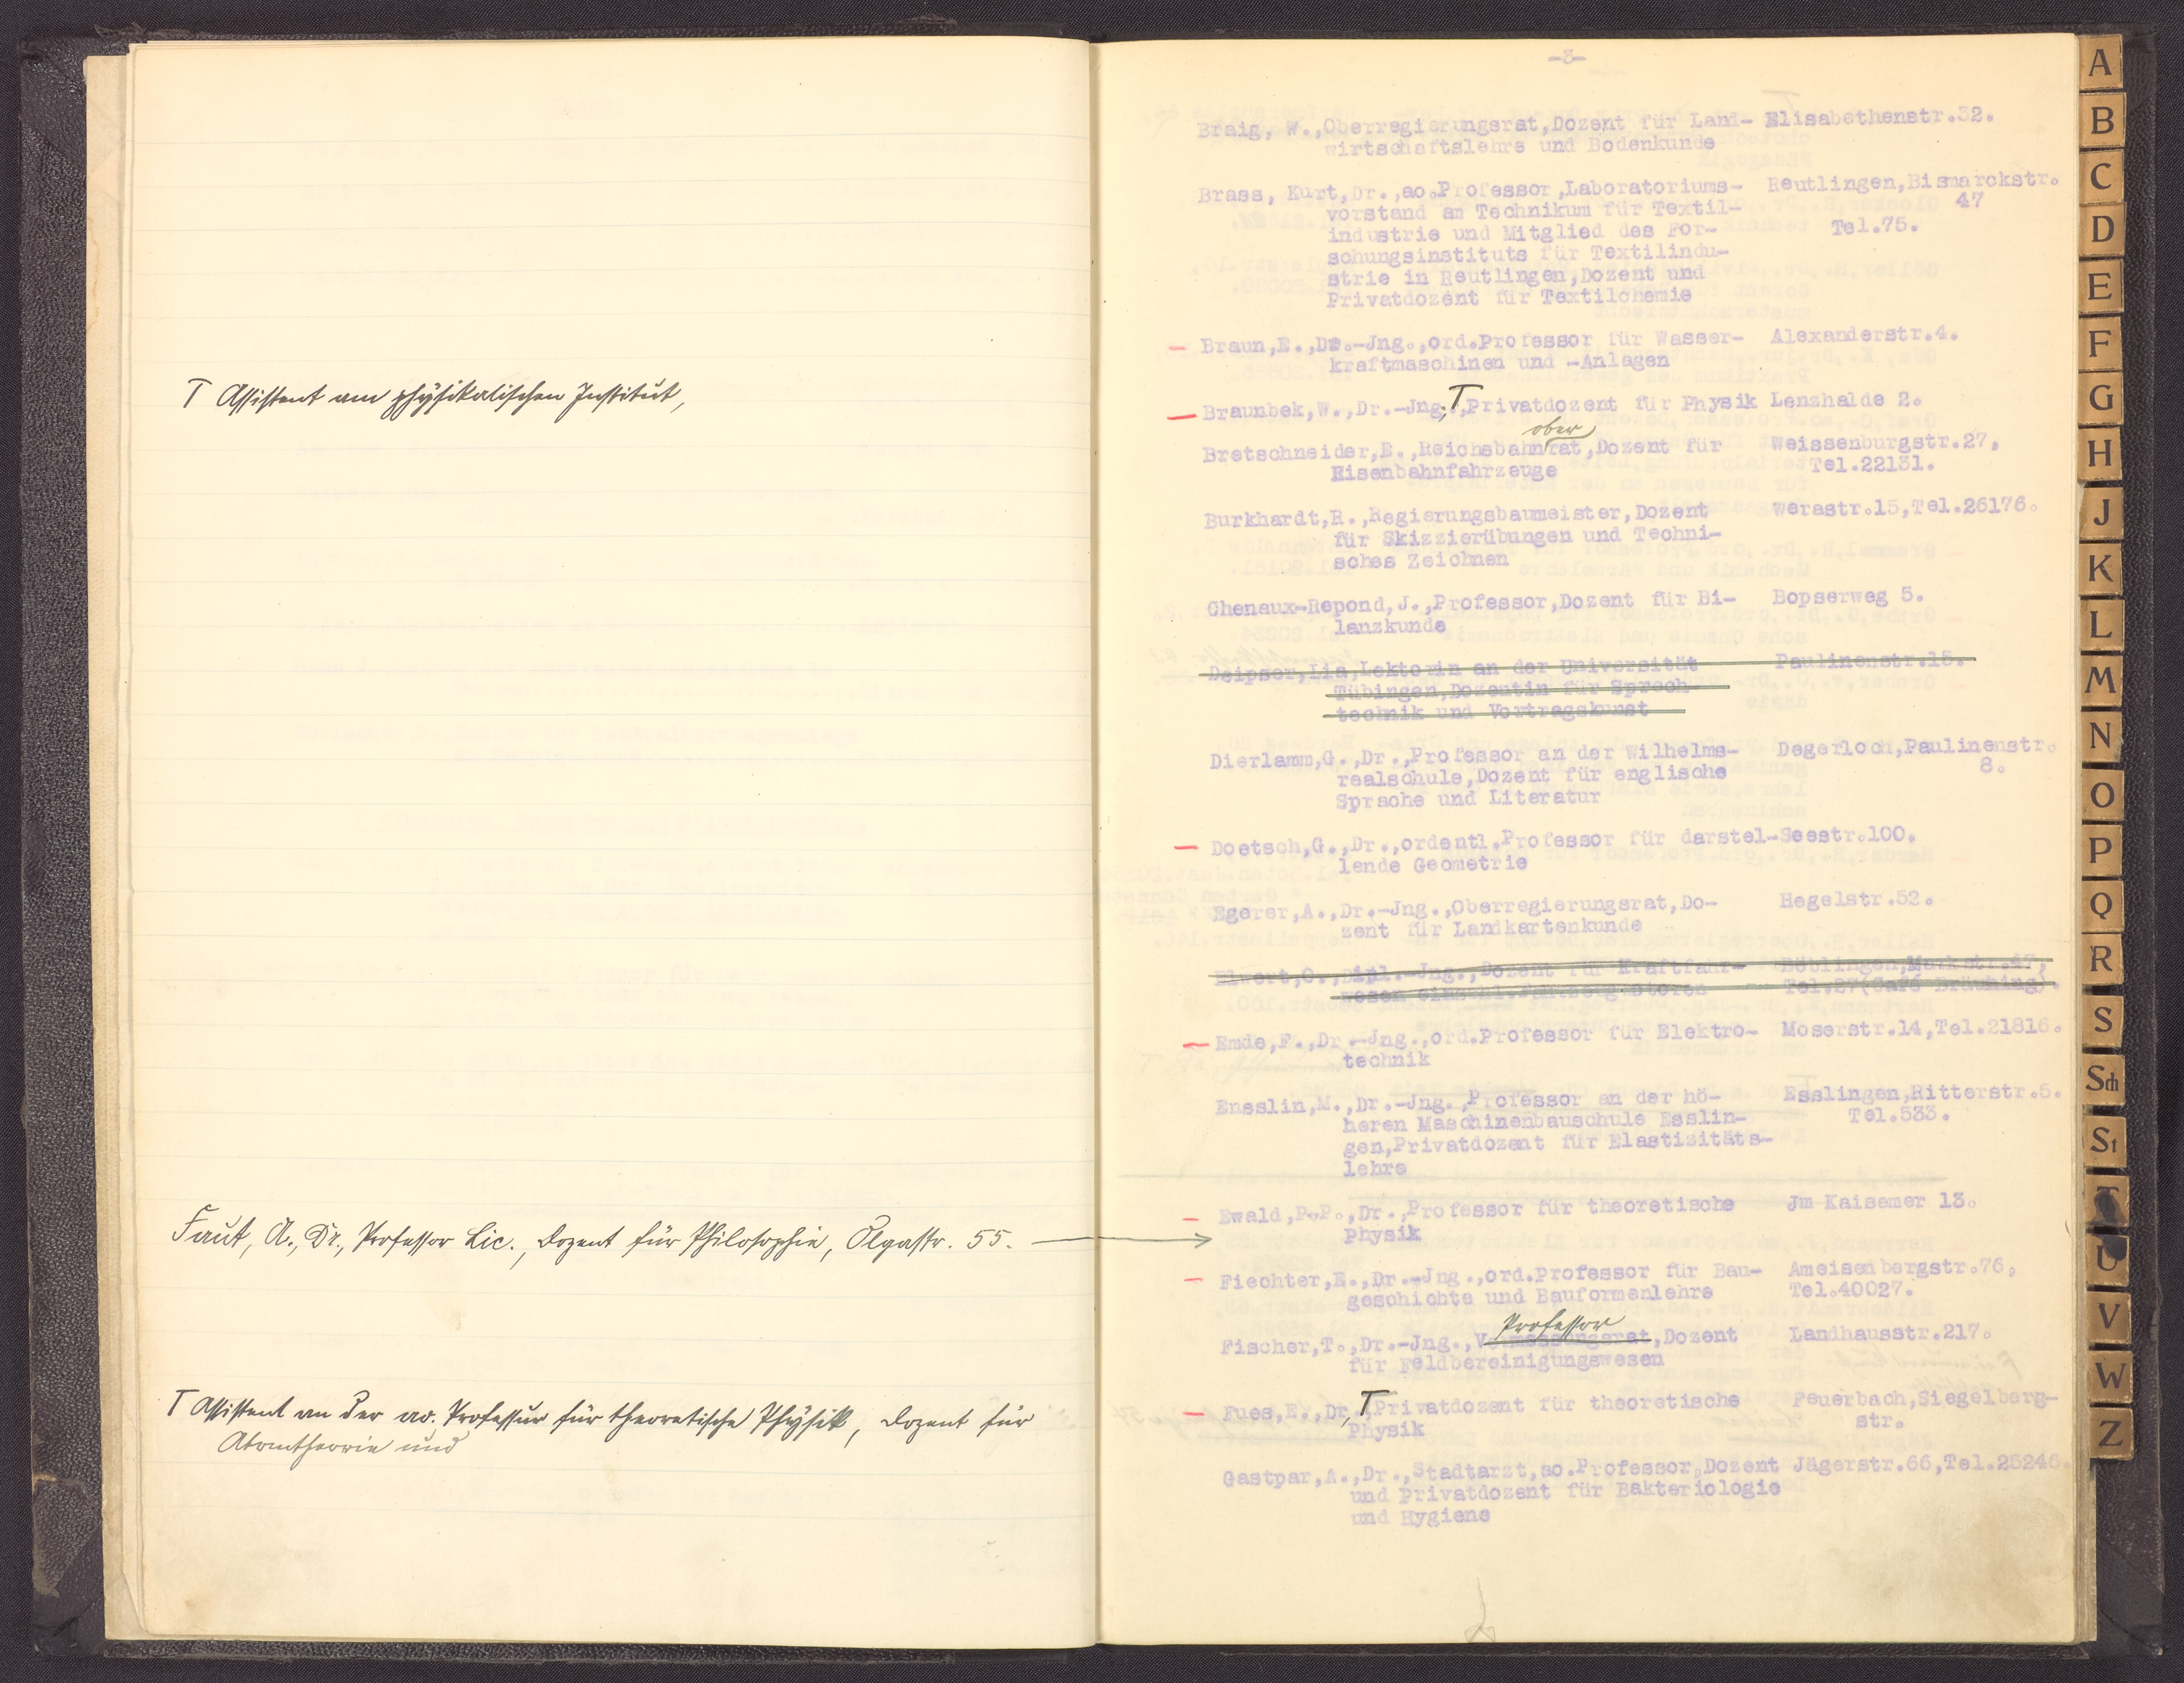 T Assistent am physikalischen Institut,
Faut, A., Dr., Professor Lic., Dozent für Philosophie, Olgastr. 55.
T Assistent an der ao. Professur für theoretische Physik, Dozent für
Atomtheorie und
-3-
Braig, W.,Oberregierungsrat,Dozent für Land- Elisabethenstr.32.
wirtschaftslehre und Bodenkunde
Brass, Kurt,Dr.,ao.Professor,Laboratoriums- Reutlingen,Bismarckstr.
vorstand am Technikum für Textil- 47
industrie und Mitglied des For- Tel.75.
schungsinstituts für Textilindu-
strie in Reutlingen,Dozent und
Privatdozent für Textilchemie
Braun,E.,Dr.-Jng.,ord.Professor für Wasser- Alexanderstr.4.
kraftmaschinen und -Anlagen
Braunbek,W.,Dr.-Jng.,T,Privatdozent für Physik Lenzhalde 2.
ober
Bretschneider,E.,Reichsbahnrat,Dozent für Weissenburgstr.27,
Eisenbahnfahrzeuge Tel.22131.
Burkhardt,R.,Regierungsbaumeister,Dozent Werastr.15,Tel.26176.
für Skizzierübungen und Techni-
sches Zeichnen
Chenaux-Repond,J.,Professor,Dozent für Bi- Bopserweg 5.
lanzkunde
Deipser,Lia,Lektorin an der Universität Paulinenstr.15.
Tübingen,Dozentin für Sprech-
technik und Vortragskunst
Dierlamm,G.,Dr.,Professor an der Wilhelms- Degerloch,Paulinenstr.
realschule,Dozent für englische 8.
Sprache und Literatur
Doetsch,G.,Dr.,ordentl.Professor für darstel-Seestr.100.
lende Geometrie
Egerer,A.,Dr.-Jng.,Oberregierungsrat,Do- Hegelstr.52.
zent für Landkartenkunde
Elwert,O.,Dipl.-Jng.,Dozent für Kraftfahr- Böblingen,Markstr.47,
wesen Tel.27(Café Bräuhing).
Emde,F.,Dr.-Jng.,ord.Professor für Elektro- Moserstr.14,Tel.21816.
technik
Ensslin,M.,Dr.-Jng.,Professor an der hö- Esslingen,Ritterstr.5.
heren Maschinenbauschule Esslin- Tel.533.
gen,Privatdozent für Elastizitäts-
lehre
Ewald,P.P.,Dr.,Professor für theoretische Jm Kaisemer 13.
Physik
Fiechter,E.,Dr.-Jng.,ord.Professor für Bau- Ameisenbergstr.76,
geschichte und Bauformenlehre Tel.40027.
Professor
Fischer,T.,Dr.-Jng.,Vermessungsrat,Dozent Landhausstr.217.
für Feldbereinigungswesen
Fues,E.,Dr.,T,Privatdozent für theoretische Feuerbach,Siegelberg-
Physik str.
Gastpar,A.,Dr.,Stadtarzt,ao.Professor,Dozent Jägerstr.66,Tel.25246.
und Privatdozent für Bakteriologie
und Hygiene
A
B
C
D
E
F
G
H
J
K
L
M
N
O
P
Q
R
S
Sch
St
T
U
V
W
Z